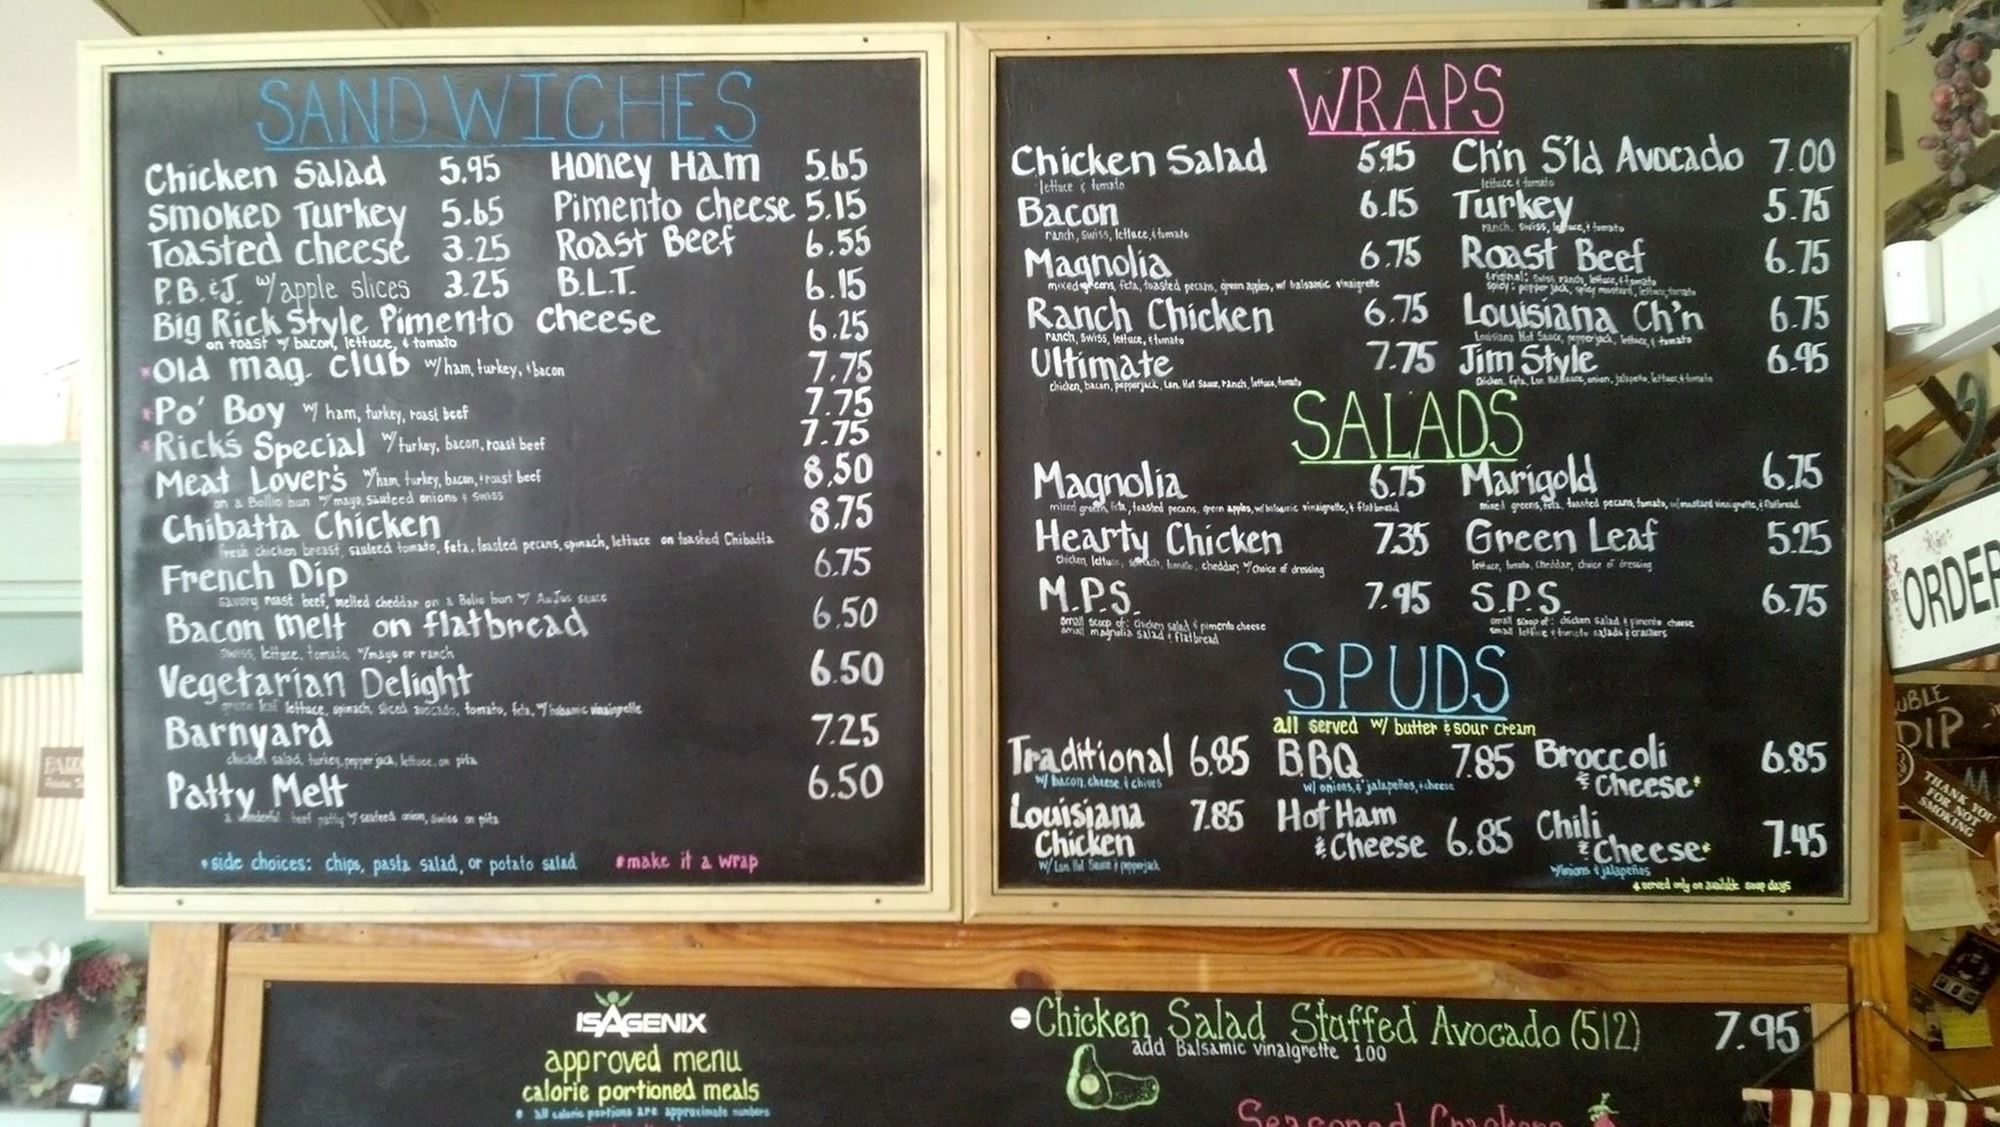 SANDWICHES
Chicken Salad 5.95 Honey Ham 5.65
Smoked Turkey 5.65 Pimento cheese 5.15
Toasted cheese 3.25 Roast Beef 6.55
P.B.&J. w/ apple slices 3.25 B.L.T. 6.15
Big Rick Style Pimento cheese 6.25
on toast w/ bacon, lettuce, & tomato
*Old mag. club w/ ham, turkey, & bacon 7.75
*Po' Boy w/ ham, turkey, roast beef 7.75
*Rick's Special w/ turkey, bacon, roast beef 7.75
Meat Lover's w/ ham, turkey, bacon, & roast beef 8.50
on a Bollio bun w/ mayo, sauteed onions & swiss
Chibatta Chicken 8.75
fresh chicken breast, sauteed tomato, feta, toasted pecans, spinach, lettuce on toasted Chibatta
French Dip 6.75
savory roast beef, melted cheddar on a Bolio bun w/ AuJus sauce
Bacon melt on flatbread 6.50
swiss, lettuce, tomato, w/ mayo or ranch
Vegetarian Delight 6.50
green leaf lettuce, spinach, sliced avocado, tomato, feta, w/ balsamic vinaigrette
Barnyard 7.25
chicken salad, turkey, pepper jack, lettuce on pita
Patty Melt 6.50
a wonderful beef patty w/ sauteed onion, swiss on pita
*side choices: chips, pasta salad, or potato salad *make it a wrap
WRAPS
Chicken Salad 5.95 Ch'n S'ld Avocado 7.00
lettuce & tomato lettuce & tomato
Bacon 6.15 Turkey 5.75
ranch, swiss, lettuce, & tomato ranch, swiss, lettuce, & tomato
Magnolia 6.75 Roast Beef 6.75
mixed greens, feta, toasted pecans, green apples, w/ balsamic vinaigrette original: swiss ranch, lettuce, & tomato
spicy: pepper jack, spicy mustard, lettuce, tomato
Ranch Chicken 6.75 Louisiana Ch'n 6.75
ranch, swiss, lettuce, & tomato Louisiana Hot Sauce, pepperjack, lettuce, & tomato
Ultimate 7.75 Jim Style 6.95
chicken, bacon, pepperjack, Lsn. Hot Sauce, ranch, lettuce, tomato Chicken, feta, Lsn. Hot Sauce, onion, jalapeño, lettuce & tomato
SALADS
Magnolia 6.75 Marigold 6.75
mixed greens, feta, toasted pecans, green apples, w/ balsamic vinaigrette, & flatbread mixed greens, feta, toasted pecans, tomato, w/ mustard vinaigrette, & flatbread
Hearty Chicken 7.35 Green Leaf 5.25
chicken, lettuce, spinach, tomato, cheddar, w/ choice of dressing lettuce, tomato, cheddar, choice of dressing
M.P.S. 7.95 S.P.S. 6.75
small scoop of: chicken salad & pimento cheese small scoop of: chicken salad & pimento cheese
small magnolia salad & flatbread small lettuce & tomato salads & crackers
SPUDS
all served w/ butter & sour cream
Traditional 6.85 BBQ 7.85 Broccoli 6.85
w/ bacon, cheese, & chives w/ onions, & jalapeños, & cheese & Cheese*
Louisiana 7.85 Hot Ham Chili
Chicken & Cheese 6.85 & Cheese* 7.45
w/ Lsn. Hot Sauce & pepperjack w/ onions & jalapeños
* served only on available soup days
ORDER
DIP
THANK YOU
FOR NOT
SMOKING
ISAGENIX
approved menu
calorie portioned meals
* all calorie portions are approximate numbers
Chicken Salad Stuffed Avocado (512) 7.95
add Balsamic vinaigrette 1.00
Seasoned Crackers